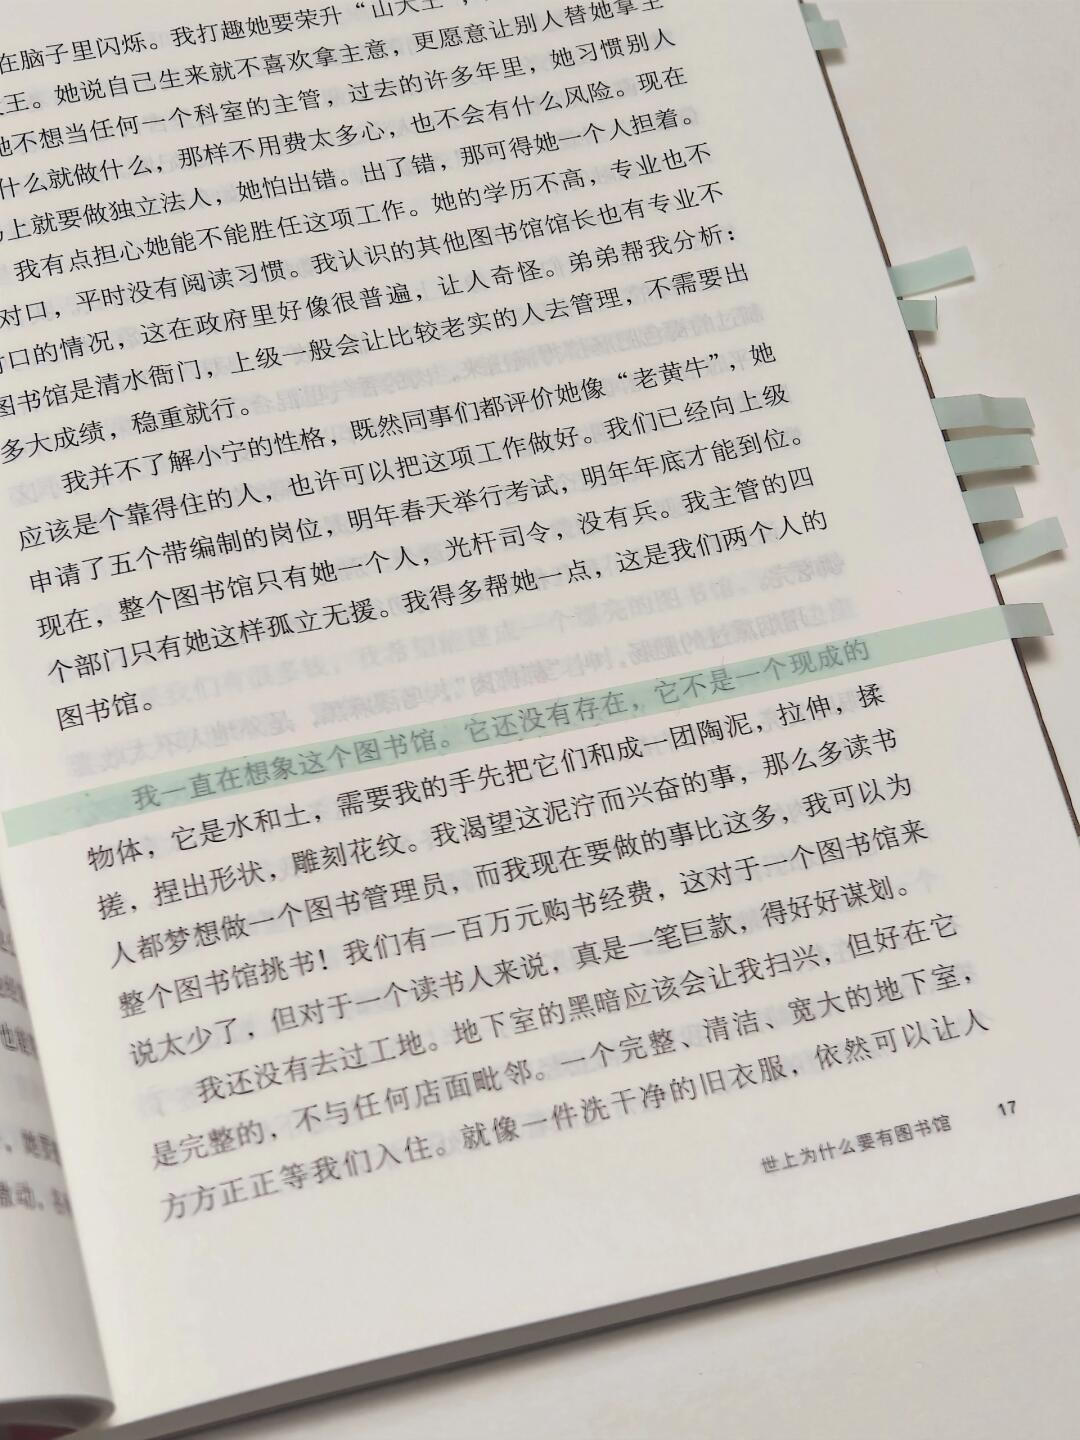 在脑子里闪烁。我打趣她要荣升“山大王”，
大王。她说自己生来就不喜欢拿主意，更愿意让别人替她拿主
她不想当任何一个科室的主管，过去的许多年里，她习惯别人
什么就做什么，那样不用费太多心，也不会有什么风险。现在
马上就要做独立法人，她怕出错。出了错，那可得她一个人担着。
我有点担心她能不能胜任这项工作。她的学历不高，专业也不
对口，平时没有阅读习惯。我认识的其他图书馆馆长也有专业不
对口的情况，这在政府里好像很普遍，让人奇怪。弟弟帮我分析：
图书馆是清水衙门，上级一般会让比较老实的人去管理，不需要出
多大成绩，稳重就行。
我并不了解小宁的性格，既然同事们都评价她像“老黄牛”，她
应该是个靠得住的人，也许可以把这项工作做好。我们已经向上级
申请了五个带编制的岗位，明年春天举行考试，明年年底才能到位。
现在，整个图书馆只有她一个人，光杆司令，没有兵。我主管的四
个部门只有她这样孤立无援。我得多帮她一点，这是我们两个人的
图书馆。
我一直在想象这个图书馆。它还没有存在，它不是一个现成的
物体，它是水和土，需要我的手先把它们和成一团陶泥，拉伸，揉
搓，捏出形状，雕刻花纹。我渴望这泥泞而兴奋的事，那么多读书
人都梦想做一个图书管理员，而我现在要做的事比这多，我可以为
整个图书馆挑书！我们有一百万元购书经费，这对于一个图书馆来
说太少了，但对于一个读书人来说，真是一笔巨款，得好好谋划。
我还没有去过工地。地下室的黑暗应该会让我扫兴，但好在它
是完整的，不与任何店面毗邻。一个完整、清洁、宽大的地下室，
方方正正等我们入住。就像一件洗干净的旧衣服，依然可以让人
世上为什么要有图书馆 17